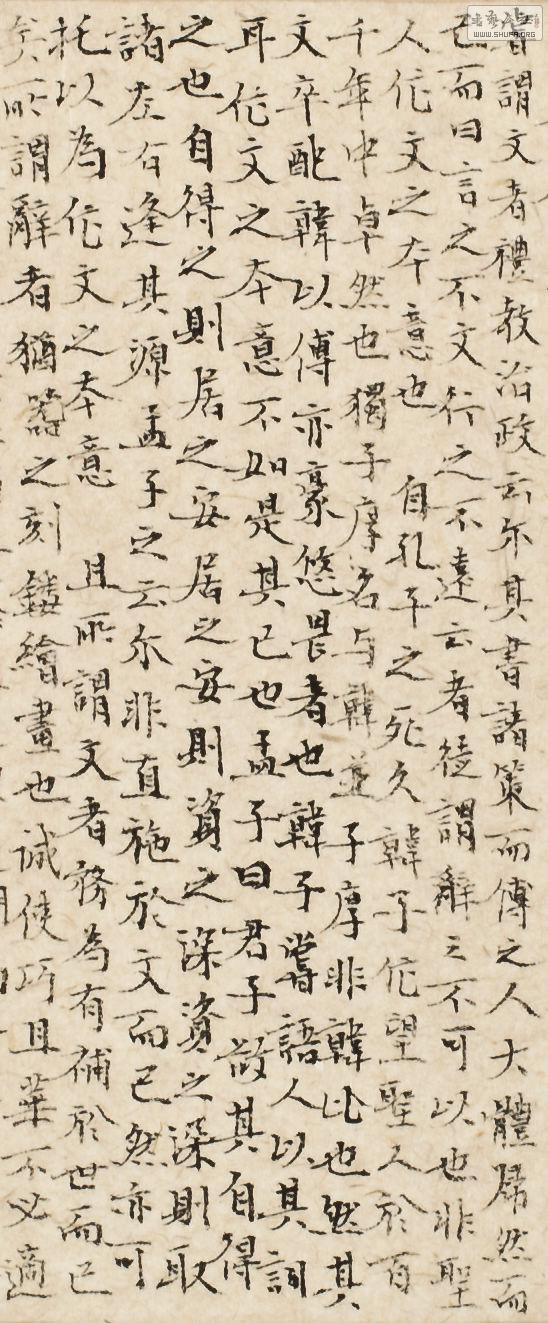 嘗謂文者禮教治政云尔其書諸策而傳之人大體歸然而
已而曰言之不文行之不遠云者徒謂辭之不可以也非聖
人作文之本意也 自孔子之死久韓子作望聖人於百
千年中卓然也獨子厚名与韓並子厚非韓比也然其
文卒配韓以傳亦豪悠畏者也韓子嘗語人以其詞
耳作文之本意不如是其已也孟子曰君子欲其自得
之也自得之則居之安居之安則資之深資之深則取
諸左右逢其源孟子之云尔非直施於文而已然亦可
托以為作文之本意 且所謂文者務為有補於世而已
矣所謂辭者猶器之刻鏤繪畫也誠使巧且華不必適
WWW.SHUFA.ORG